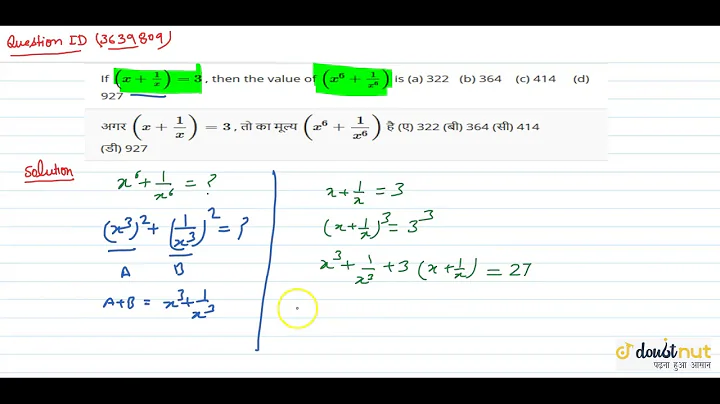 Question ID (3639809)
If (x + 1/x) = 3, then the value of (x⁶ + 1/x⁶) is (a) 322 (b) 364 (c) 414 (d)
927
अगर (x + 1/x) = 3, तो का मूल्य (x⁶ + 1/x⁶) है (ए) 322 (बी) 364 (सी) 414
(डी) 927
Solution
x⁶ + 1/x⁶ = ?
(x³)² + (1/x³)² = ?
A B
A+B = x³ + 1/x³
x + 1/x = 3
(x + 1/x)³ = 3³
x³ + 1/x³ + 3 (x + 1/x) = 27
doubtnut
पढ़ना हुआ आसान